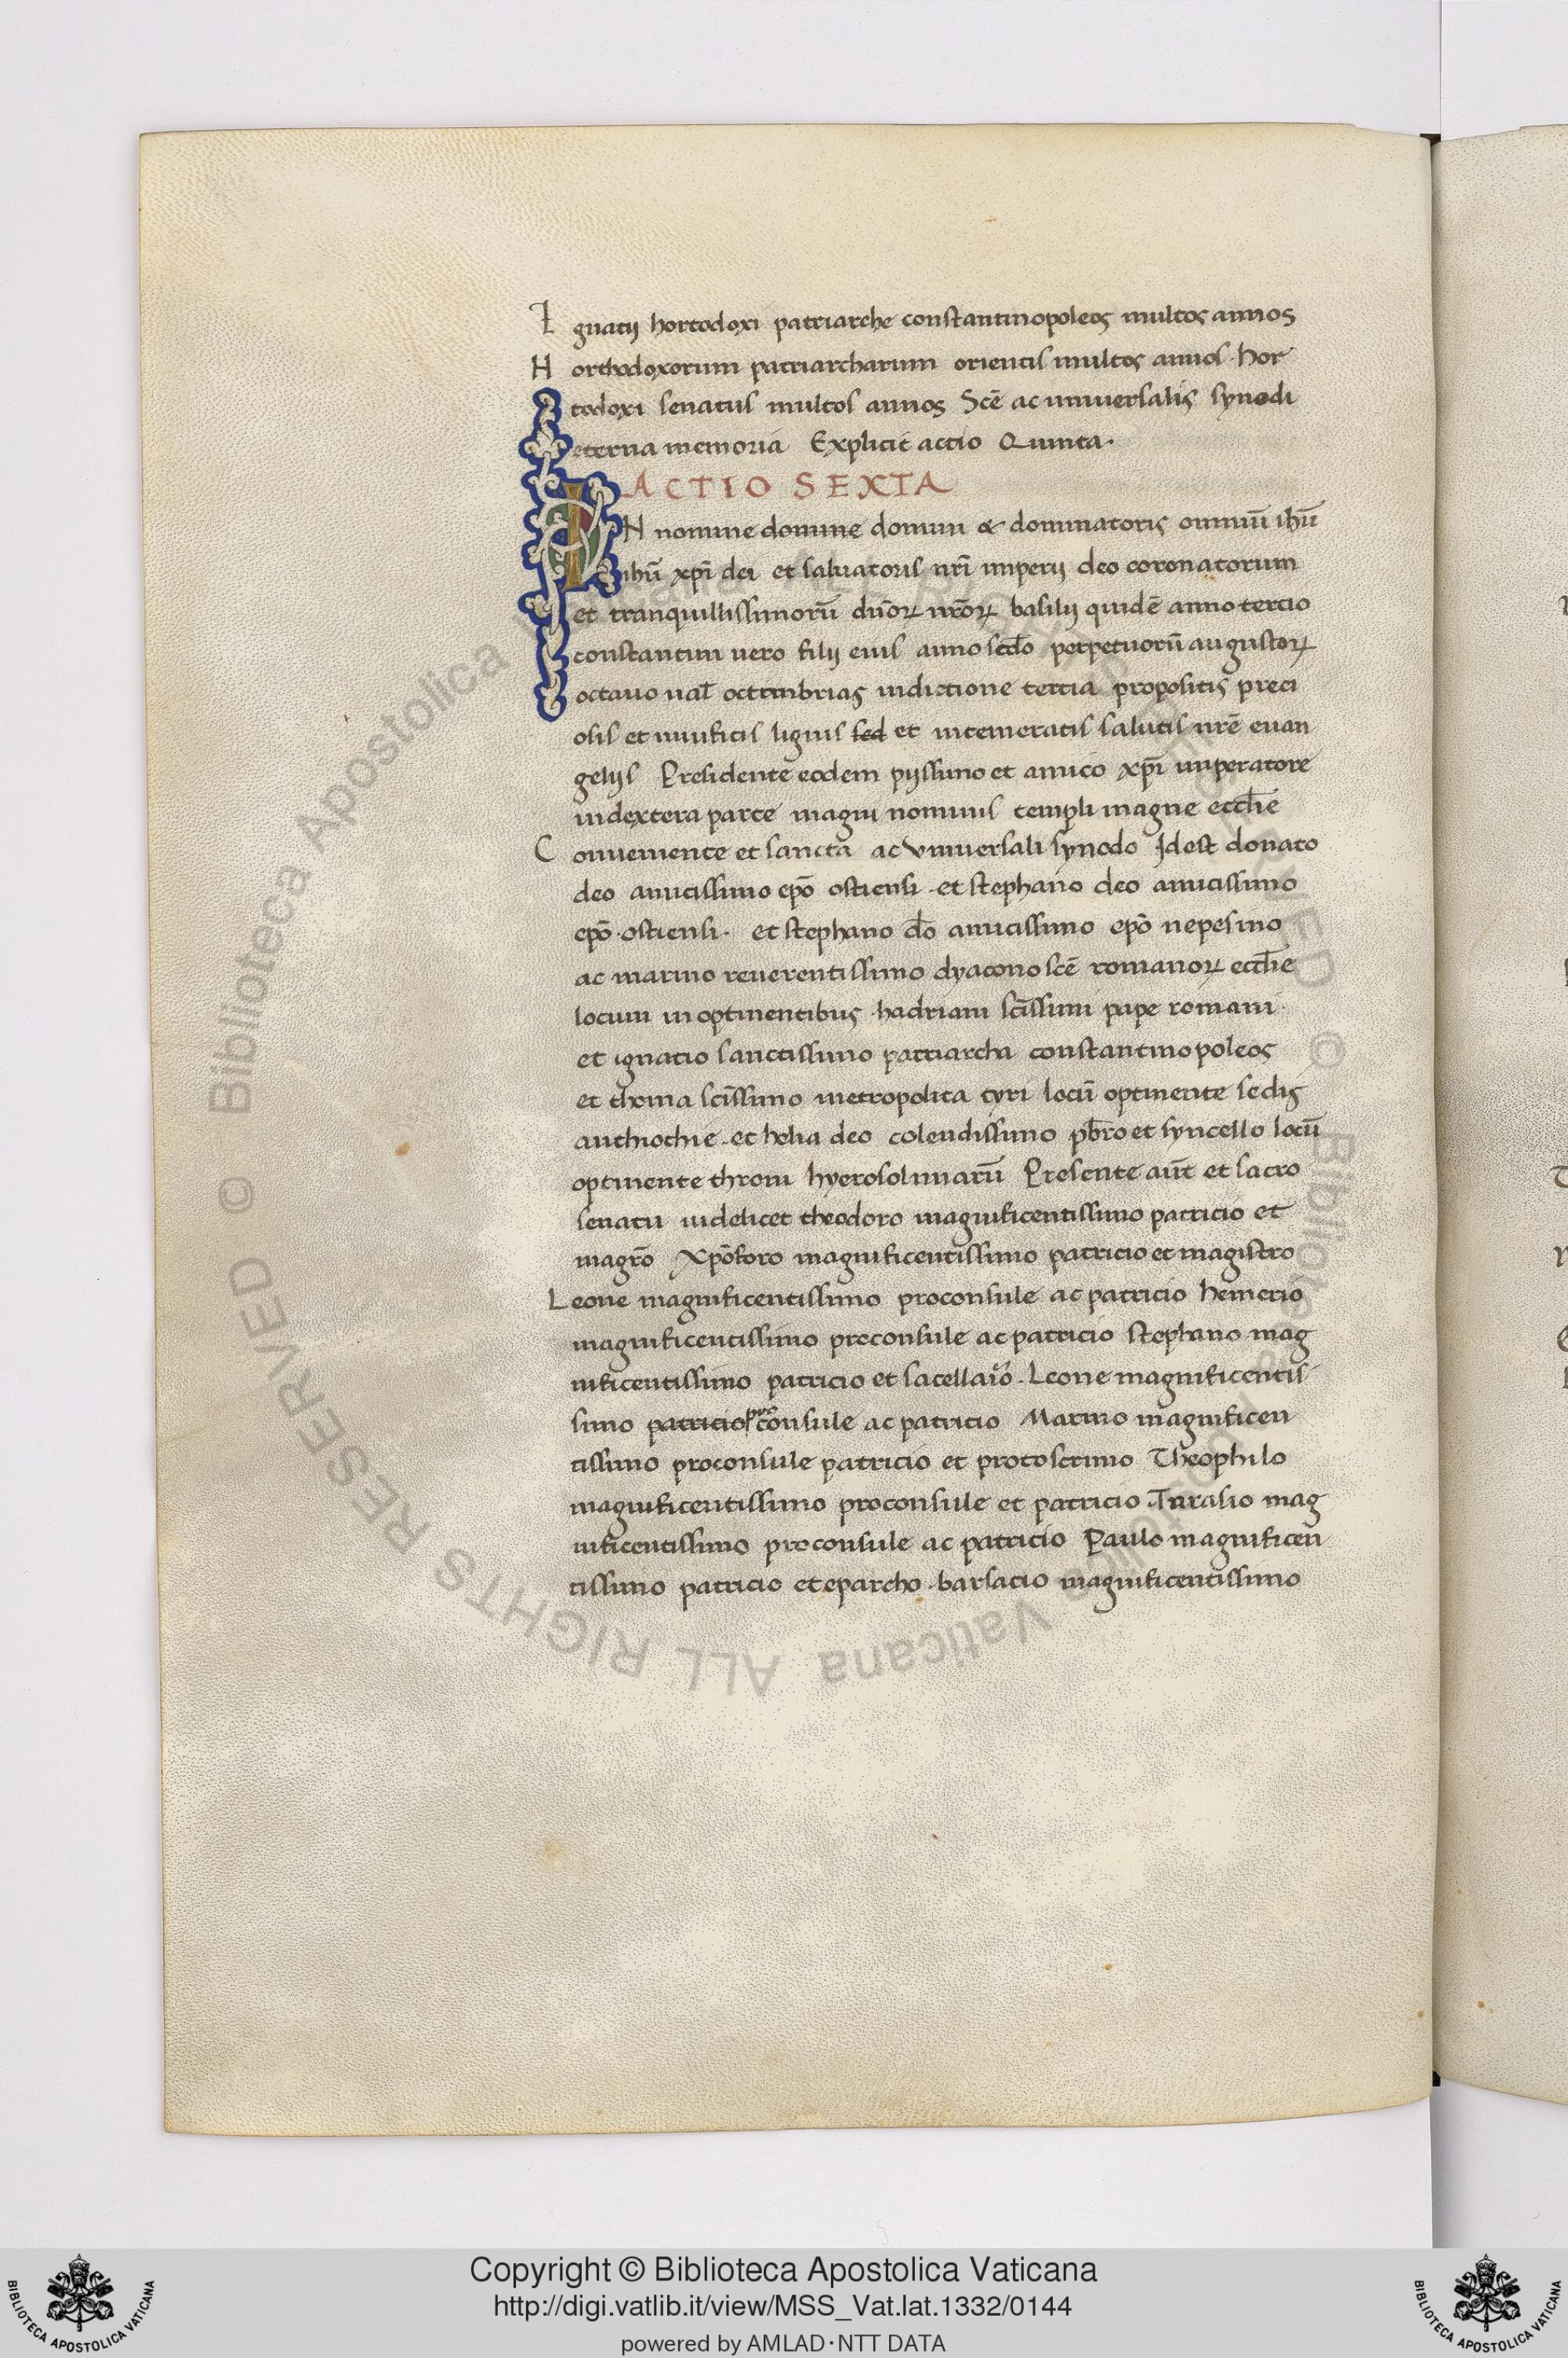 Ignatij hortodoxi patriarche constantinopoleos multos annos
Horthodoxorum patriarcharum orientis multos annos hor
todoxi senatus multos annos Scē ac universalis synodi
eterna memoria Explicit actio Quinta.
ACTIO SEXTA
IN nomine domine domini & dominatoris omniū ihū
ihū xpī dei et salvatoris nrī imperij deo coronatorum
et tranquillissimorū dnōꝝ nrōꝝ basilij quidē anno tercio
constantini uero filij eius anno scdo perpetuorū augustoꝝ
octavo
 octimbrias indictione tercia propositis preci
osis et
 lignis sed et intemeratis salutis nrē evan
gelijs Presidente eodem pijssimo et amico xpī imperatore
in dextera parte magni nominis templi magne eccl̄ie
Conveniente et sancta ac universali synodo Idest donato
deo amicissimo epō ostiensi et stephano deo amicissimo
epō ostiensi. et stephano do amicissimo epō nepesino
ac marino reverentissimo dyacono scē romanoꝝ eccl̄ie
locum in optinentibus hadriani scīssimi pape romani
et ignatio sanctissimo patriarcha constantinopoleos
et thoma scīssimo metropolita tyri locū optinente sedis
anthiochie et helia deo colendissimo pbro et syncello locū
optinente throni hyerosolimarū Presente aūt et sacro
senatu uidelicet theodoro magnificentissimo patricio et
magrō Xpōforo magnificentissimo patricio et magistro
Leone magnificentissimo proconsule ac patricio hemerio
magnificentissimo proconsule ac patricio stephano mag
nificentissimo patricio et sacellario. Leone magnificentis
simo patricio proconsule ac patricio Marino magnificen
tissimo proconsule patricio et protoscrinio Theophilo
magnificentissimo proconsule et patricio
 mag
nificentissimo proconsule ac patricio Paulo magnificen
tissimo patricio et eparcho. barsacio magnificentissimo
© Biblioteca Apostolica Vaticana ALL RIGHTS RESERVED
Copyright © Biblioteca Apostolica Vaticana
http://digi.vatlib.it/view/MSS_Vat.lat.1332/0144
powered by AMLAD·NTT DATA
BIBLIOTECA APOSTOLICA VATICANA
BIBLIOTECA APOSTOLICA VATICANA